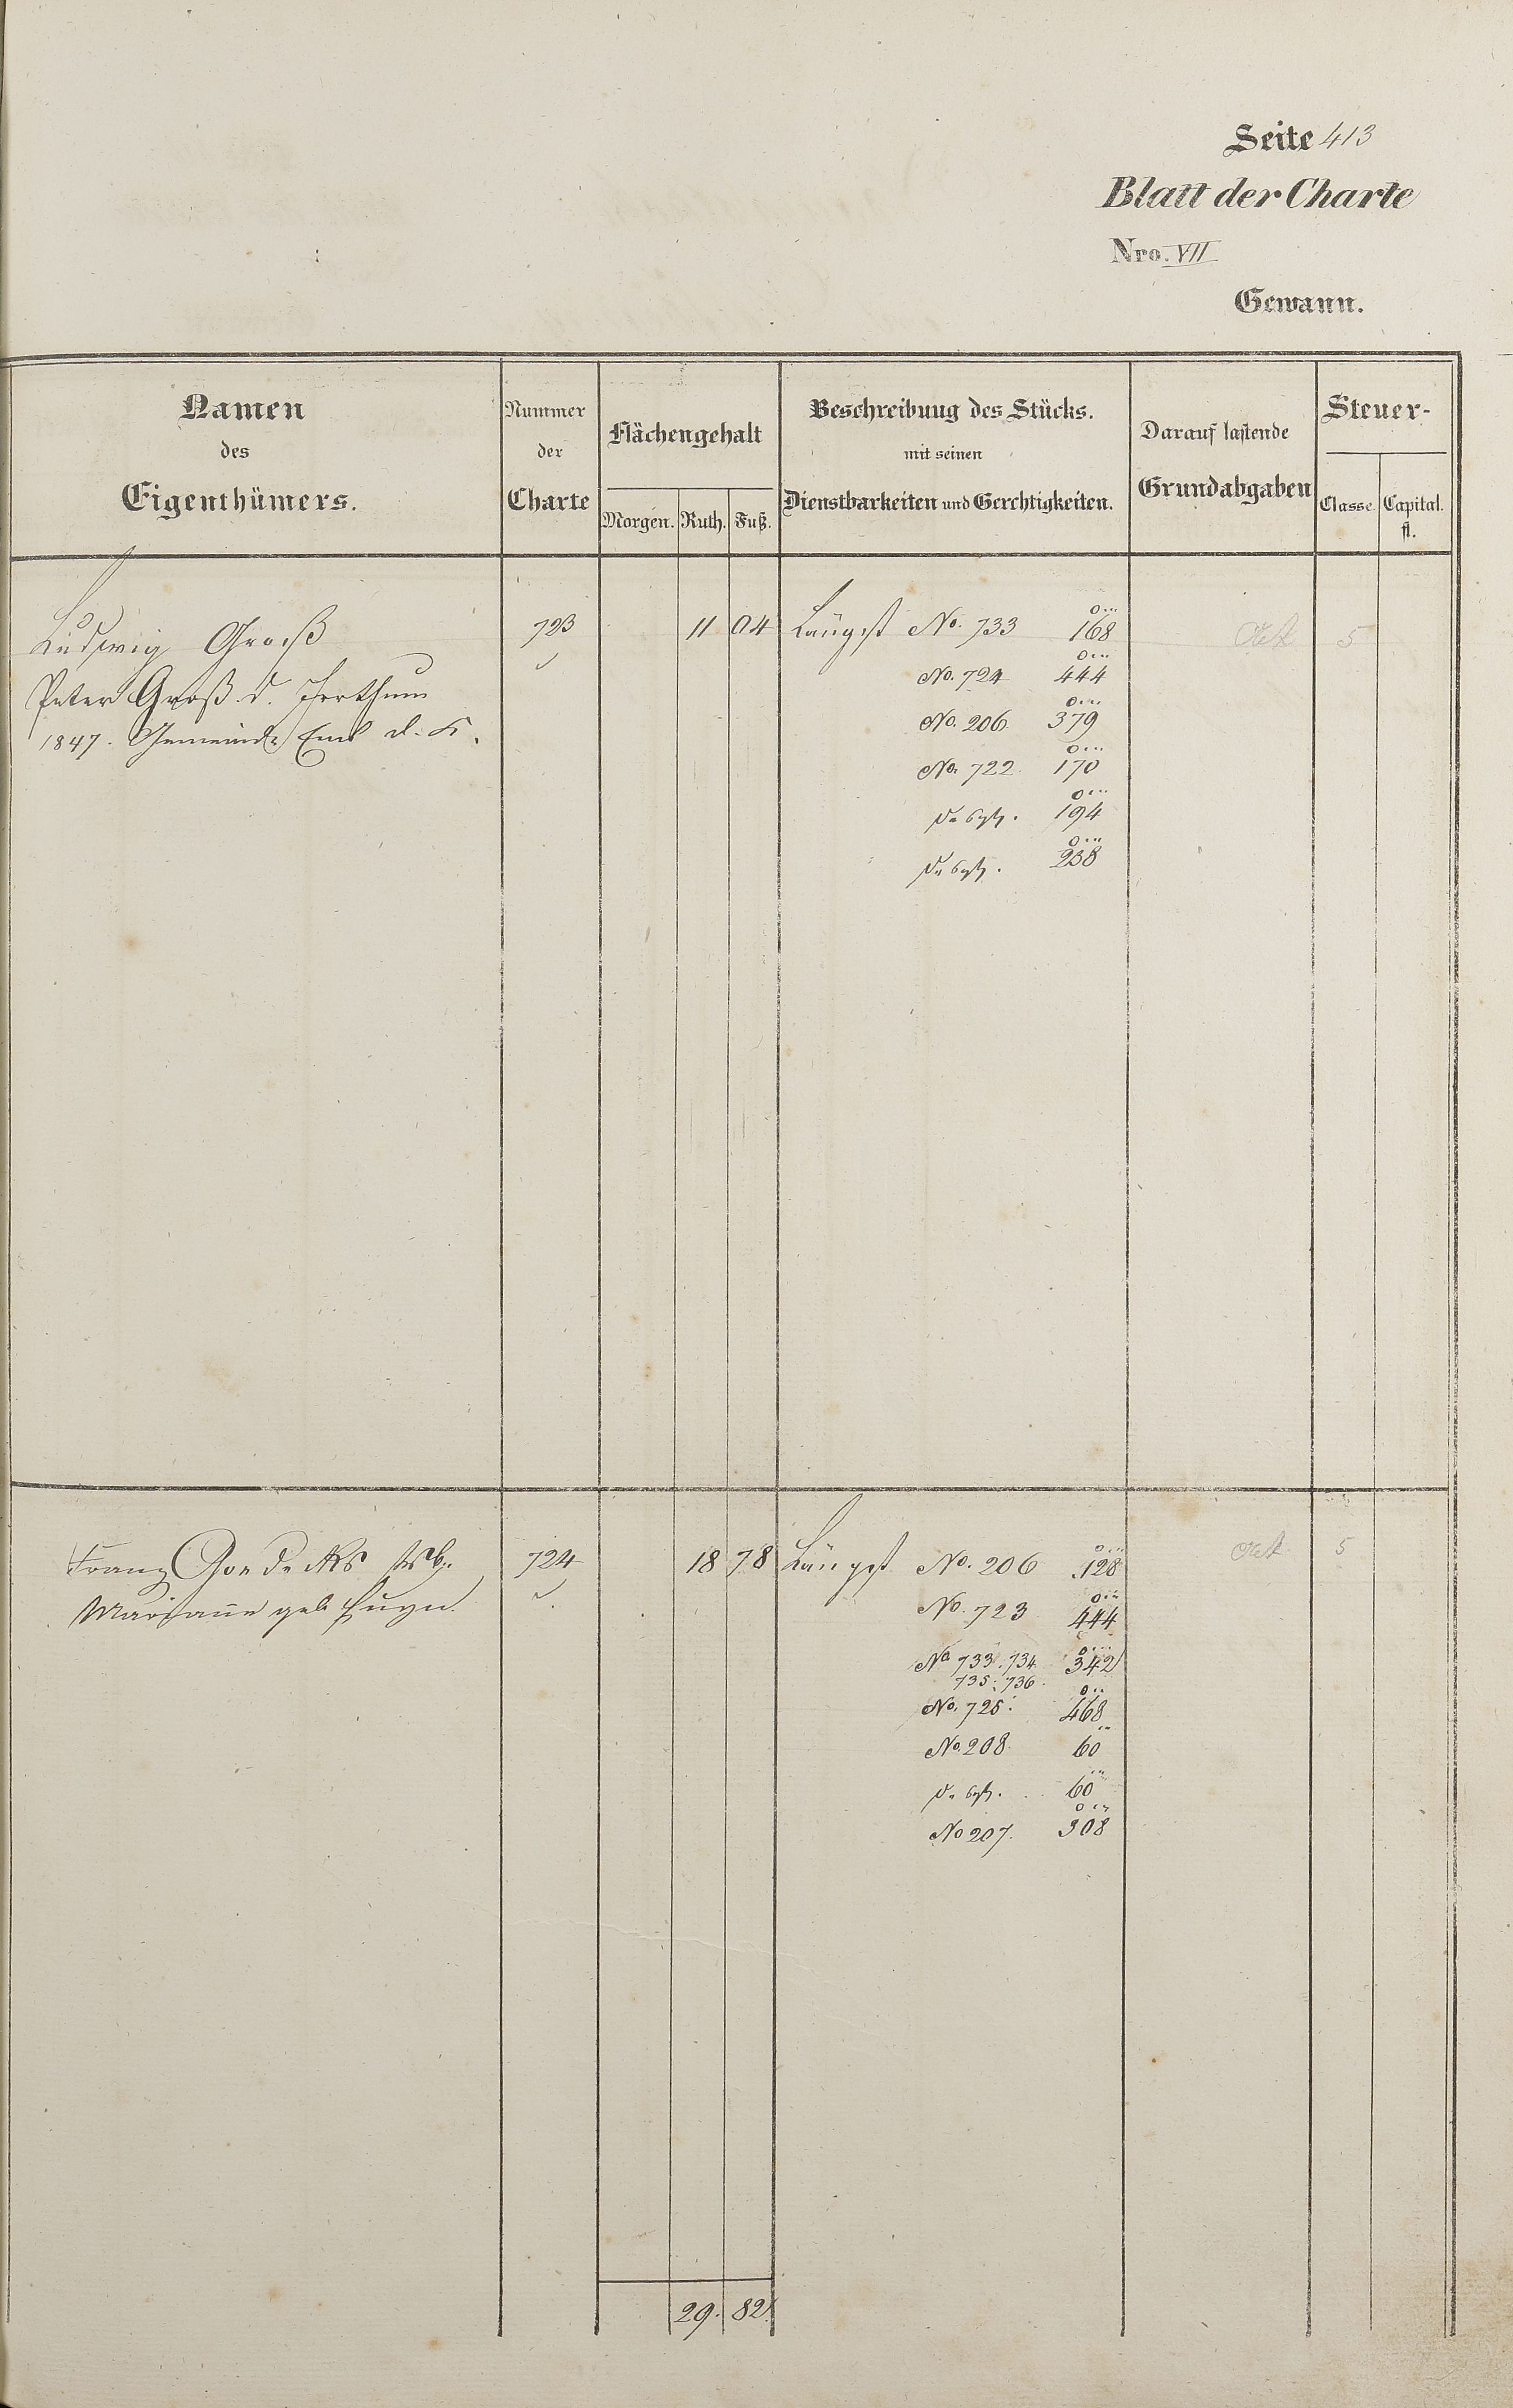 Seite 413
Blatt der Charte
Nro. VII
Gewann.
Namen des Eigenthümers.
Nummer der Charte
Flächengehalt
Morgen. Ruth. Fuß.
Beschreibung des Stücks. mit seinen Dienstbarkeiten und Gerechtigkeiten.
Darauf lastende Grundabgaben
Steuer-
Classe. Capital. fl.
Ludwig Groß 723 11 04 Längst No. 733 168 5
Peter Groß d. Irrthum No. 724 444
1847. Gemeinde Ems No. 206 379
No. 722 170
desgl. 194
desgl. 238
Franz 724 18 78 Längst No. 206 128 5
Mariane geb. No. 723 444
No 733. 734 342
735. 736
No. 725. 468
No. 208 60
desgl. 60
No 207. 308
29. 82